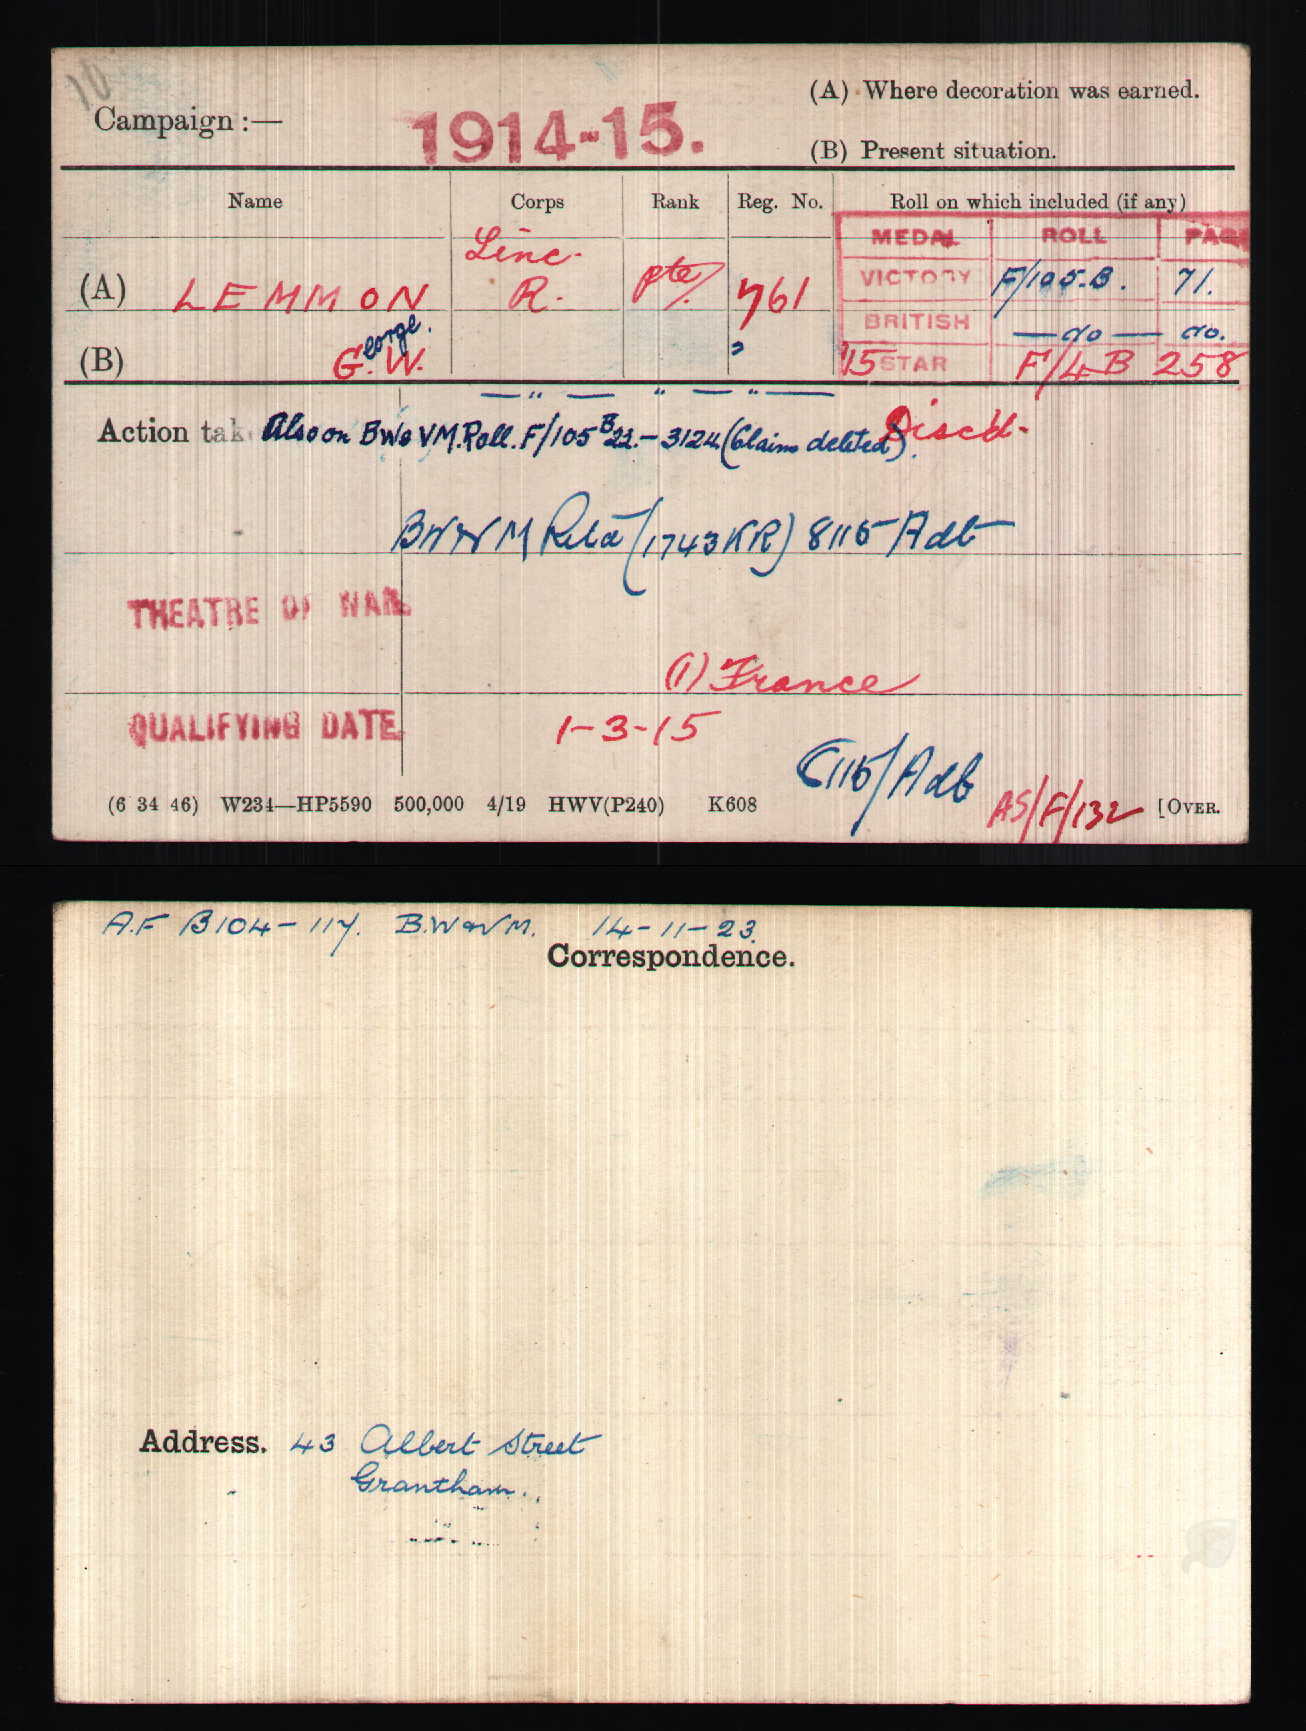 10
Campaign :—
1914-15.
(A) Where decoration was earned.
(B) Present situation.
Name Corps Rank Reg. No. Roll on which included (if any)
MEDAL ROLL PAGE
(A) LEMMON Linc. R. Pte/. 761 VICTORY F/105.B. 71.
BRITISH — do — do.
(B) George. W. 15 STAR F/4B 258
— " — " — " —
Action tak Also on BW&VM.Roll.F/105 B22.-3124 (Claim deleted). Discd.
BW&VM Retd (1743KR) 8115 Adt
THEATRE OF WAR.
(1) France
QUALIFYING DATE. 1-3-15
8115/Adt
(6 34 46) W234—HP5590 500,000 4/19 HWV(P240) K608 AS/F/132 [OVER.
A.F B104-117. B.W&VM. 14-11-23.
Correspondence.
Address. 43 Albert Street
Grantham.